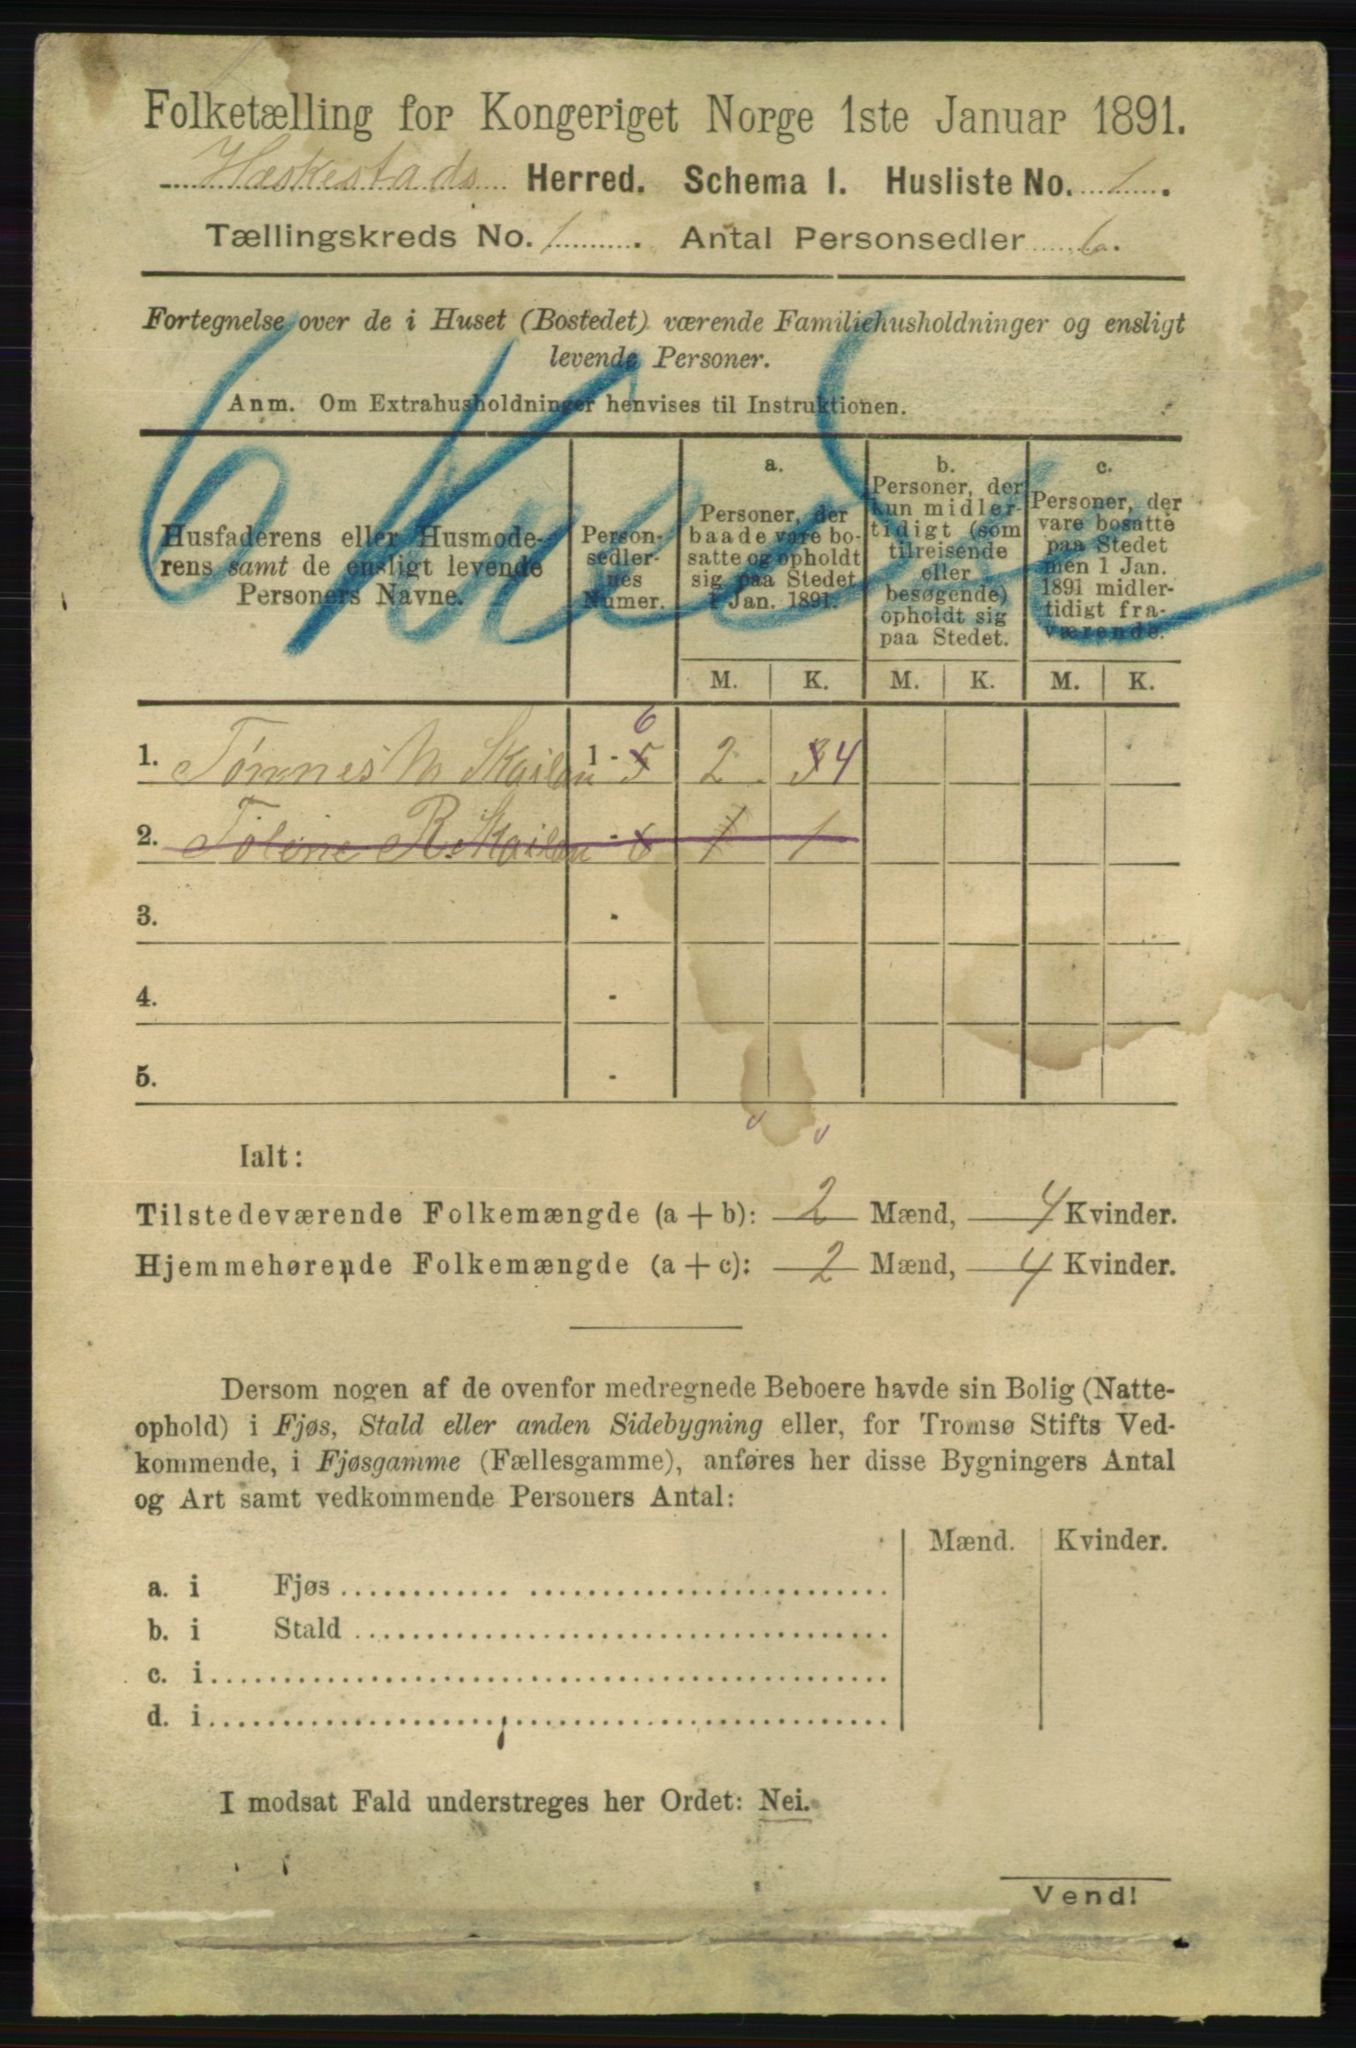 Folketælling for Kongeriget Norge 1ste Januar 1891.
Heskestads Herred. Schema I. Husliste No. 1.
Tællingskreds No. 1. Antal Personsedler 6.
Fortegnelse over de i Huset (Bostedet) værende Familiehusholdninger og ensligt
levende Personer.
Anm. Om Extrahusholdninger henvises til Instruktionen.
Husfaderens eller Husmode-
rens samt de ensligt levende
Personers Navne.
Person-
sedler-
nes
Numer.
a.
Personer, der
baade vare bo-
satte og opholdt
sig paa Stedet
1 Jan. 1891.
b.
Personer, der
kun midler-
tidigt (som
tilreisende
eller
besøgende)
opholdt sig
paa Stedet.
c.
Personer, der
vare bosatte
paa Stedet
men 1 Jan.
1891 midler-
tidigt fra-
værende.
M. K. M. K. M. K.
6
1. Tønnes M Skailan 1 - 5 2 34
2. Toline R. Skailan - 6 1 1
3. -
4. -
5. -
Ialt:
Tilstedeværende Folkemængde (a + b): 2 Mænd, 4 Kvinder.
Hjemmehørende Folkemængde (a + c): 2 Mænd, 4 Kvinder.
Dersom nogen af de ovenfor medregnede Beboere havde sin Bolig (Natte-
ophold) i Fjøs, Stald eller anden Sidebygning eller, for Tromsø Stifts Ved-
kommende, i Fjøsgamme (Fællesgamme), anføres her disse Bygningers Antal
og Art samt vedkommende Personers Antal:
Mænd. Kvinder.
a. i Fjøs
b. i Stald
c. i
d. i
I modsat Fald understreges her Ordet: Nei.
Vend!